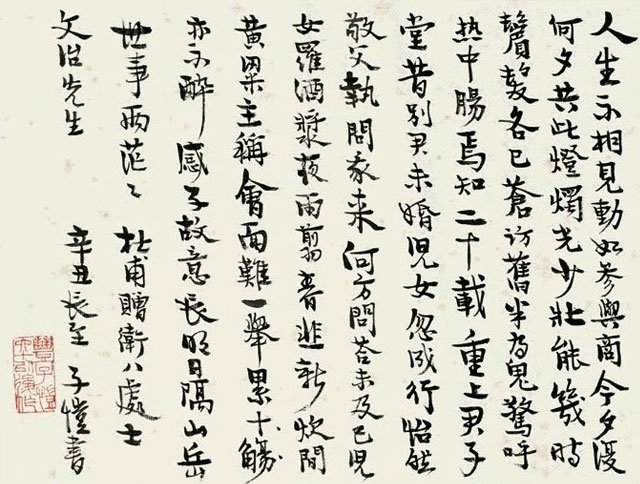 人生不相見動如参與商今夕復
何夕共此燈燭光少壯能幾時
鬢髮各已蒼訪舊半為鬼驚呼
热中腸焉知二十載重上君子
堂昔別君未婚児女忽成行怡然
敬父執問我来何方問答未及已児
女羅酒漿夜雨翦春韭新炊間
黄粱主稱會面難一舉累十觴
亦不醉感子故意長明日隔山岳
世事兩茫〻 杜甫贈衛八處士
文治先生 辛丑長至 子愷書